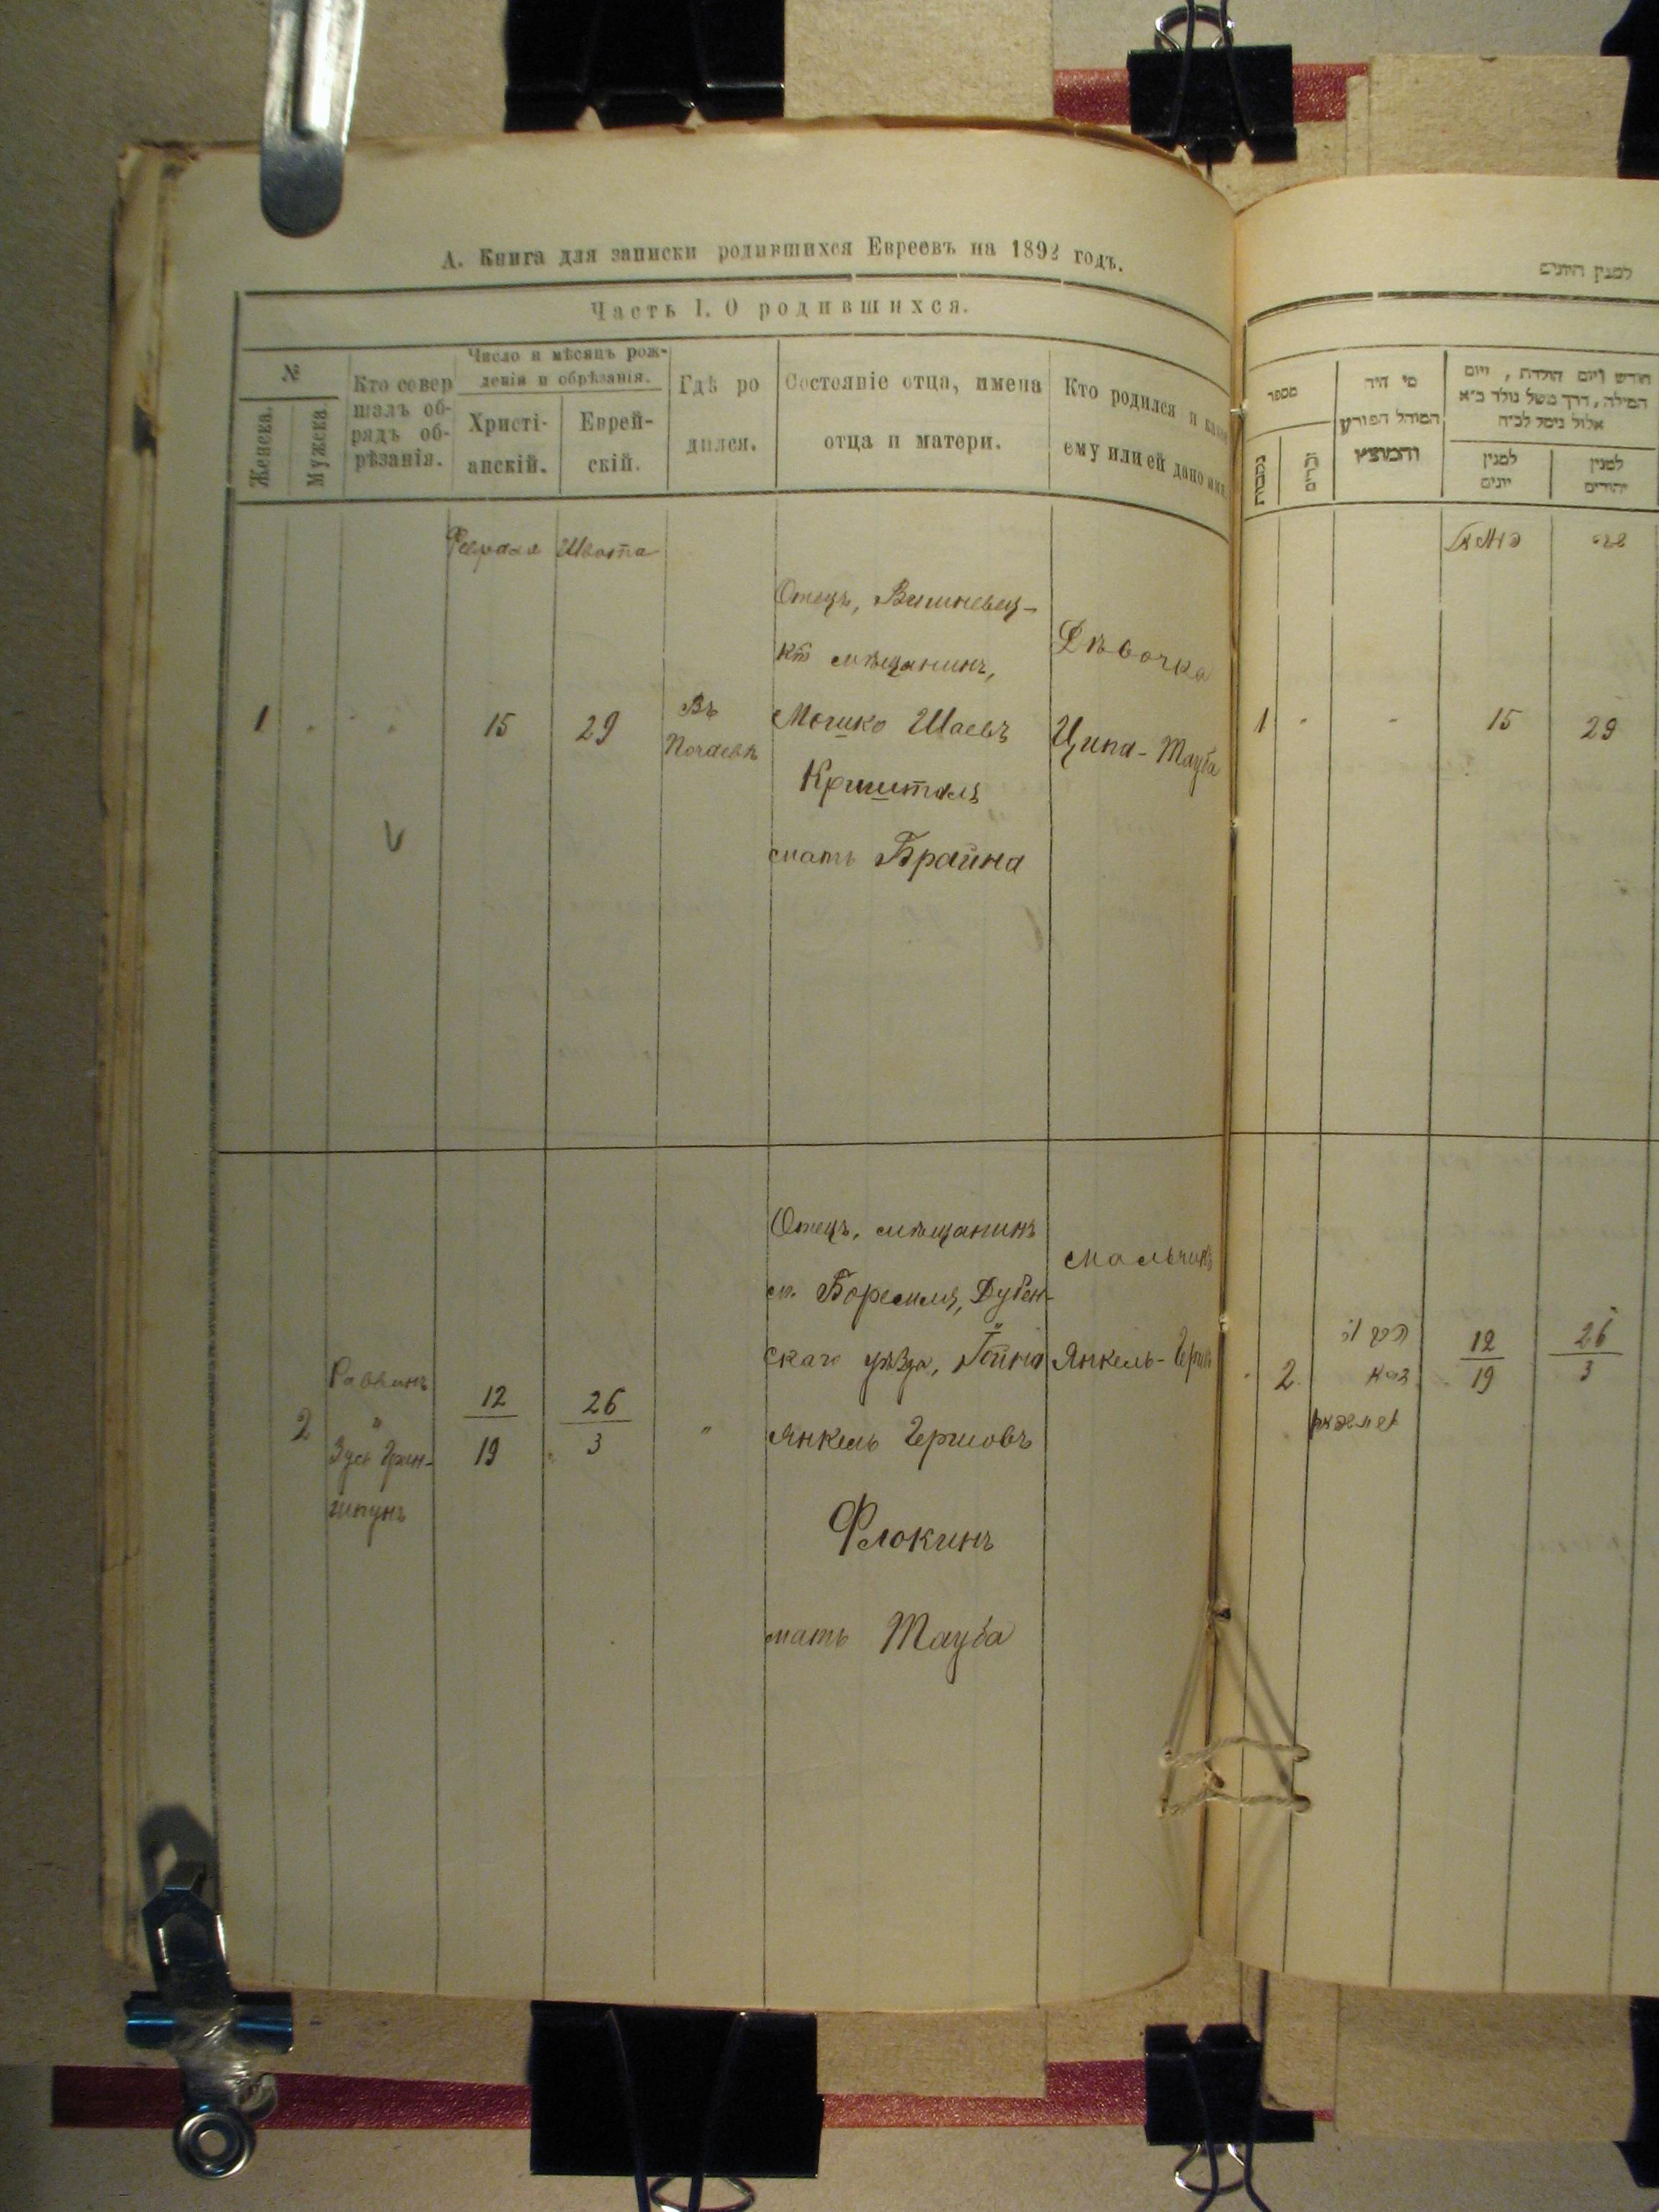 А. Книга для записки родившихся Евреевъ на 1892 годъ.
Часть I. О родившихся.
№
Женска.
Мужска.
Кто совер
шалъ об-
рядъ об-
рѣзанія.
Число и мѣсяцъ рож-
денія и обрѣзанія.
Христі-
анскій.
Еврей-
скій.
Гдѣ ро
дился.
Состояніе отца, имена
отца и матери.
Кто родился и какое
ему или ей дано имя.
Февраля
Швота
1
"
"
15
29
Въ
Почаевѣ
Отецъ, Вишневец-
кій мѣщанинъ,
Мошко Шаевъ
Криштал
мать Брайна
Дѣвочка
Ципа-Тауба
2
Раввинъ
"
Зусь Грин-
шпунъ
12
19
26
3
"
Отецъ, мѣщанинъ
м. Боремля, Дубен-
скаго уѣзда,
Янкель Гершовъ
Флокинъ
мать Тауба
Мальчикъ
Янкель-
למנין היונים
מספר
נקבות
זכרים
מי היה
המוהל הפורע
והמוצץ
חודש ויום הולדת, ויום
המילה, דרך משל נולד כ״א
אלול נימל לכ״ח
למנין
יונים
למנין
יהודים
1
"
"
15
29
2
12
19
26
3